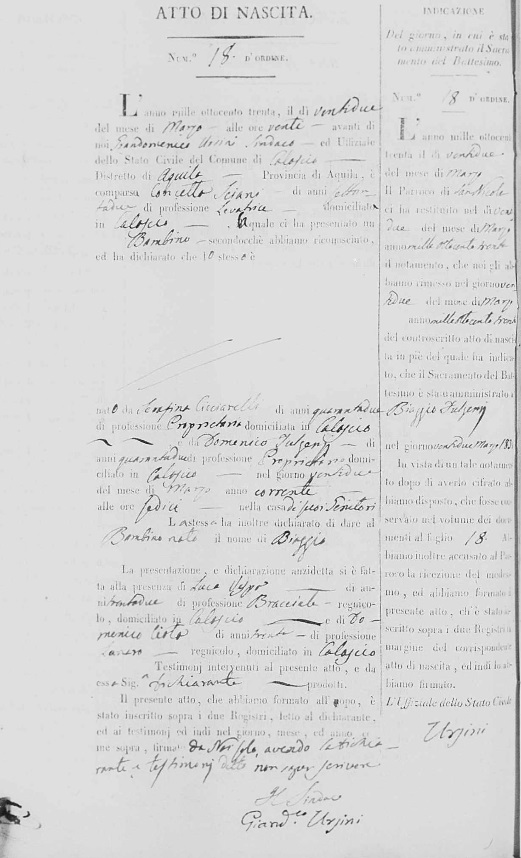 ATTO DI NASCITA.
NUM.º 18 D'ORDINE.
L'anno mille ottocento trenta, il dì ventidue
del mese di Marzo — alle ore vente — avanti di
noi Giandomenico Ursini Sindaco — ed Uffiziale
dello Stato Civile del Comune di Calascio —
Distretto di Aquila — Provincia di Aquila, è
comparsa Concetta — di anni
di professione Levatrice — domiciliata
in Calascio — quale ci ha presentato un
Bambino — secondocchè abbiamo riconosciuto,
ed ha dichiarato che lo stesso è
nato da Serafina Cicciarella di anni quarantadue
di professione Proprietaria domiciliata in Calascio
— e di Domenico — di
anni quarantadue di professione Proprietario domi-
ciliato in Calascio — nel giorno ventidue
del mese di Marzo anno corrente —
alle ore sedici — nella casa di suoi Genitori
La stessa ha inoltre dichiarato di dare al
Bambino nato il nome di Biaggio
La presentazione, e dichiarazione anzidetta si è fat-
ta alla presenza di Luca — di an-
ni trentadue di professione Bracciale — regnico-
lo, domiciliato in Calascio — e di Do-
menico di anni trenta — di professione
— regnicolo, domiciliato in Calascio
Testimonj intervenuti al presente atto, e da
essa Sig.ª dichiarante — prodotti.
Il presente atto, che abbiamo formato all'uopo, è
stato inscritto sopra i due Registri, letto al dichiarante,
ed ai testimonj ed indi nel giorno, mese, ed anno co-
me sopra, firmato da Noi solo, avendo la dichia-
rante e testimonj detto non saper scrivere
Il Sindaco
Giand.co Ursini
INDICAZIONE
Del giorno, in cui è sta-
to amministrato il Sacra-
mento del Battesimo.
NUM.º 18 D'ORDINE.
L'anno mille ottocento
trenta il dì ventidue
del mese di Marzo
Il Parroco di San Nicola
ci ha restituito nel dì venti
due del mese di Marzo
anno mille ottocento trenta
il notamento, che noi gli ab-
biamo rimesso nel giorno ven
tidue del mese di Marzo
anno mille ottocento trenta
del controscritto atto di nasci-
ta in piè del quale ha indica-
to, che il Sacramento del Bat-
tesimo è stato amministrato a
Biaggio
nel giorno ventidue Marzo 1830
In vista di un tale notamen-
to dopo di averlo cifrato ab-
biamo disposto, che fosse con-
servato nel volume dei docu-
menti al foglio 18. Ab-
biamo inoltre accusato al Par-
roco la ricezione del medesi-
mo, ed abbiamo formato il
presente atto, ch'è stato in-
scritto sopra i due Registri in
margine del corrispondente
atto di nascita, ed indi lo ab-
biamo firmato.
L'Uffiziale dello Stato Civile
Ursini